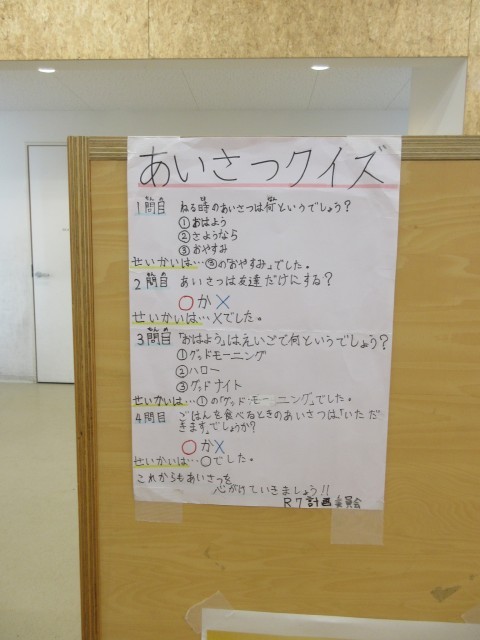 あいさつクイズ
1問目 ねる時のあいさつは何というでしょう?
①おはよう
②さようなら
③おやすみ
せいかいは…③の「おやすみ」でした。
2問目 あいさつは友達だけにする?
○か×
せいかいは…×でした。
3問目 「おはよう」はえいごで何というでしょう?
①グッドモーニング
②ハロー
③グッドナイト
せいかいは…①の「グッドモーニング」でした。
4問目 ごはんを食べるときのあいさつは「いただ
きます」でしょうか?
○か×
せいかいは…○でした。
これからもあいさつを
心がけていきましょう!!
R7計画委員会